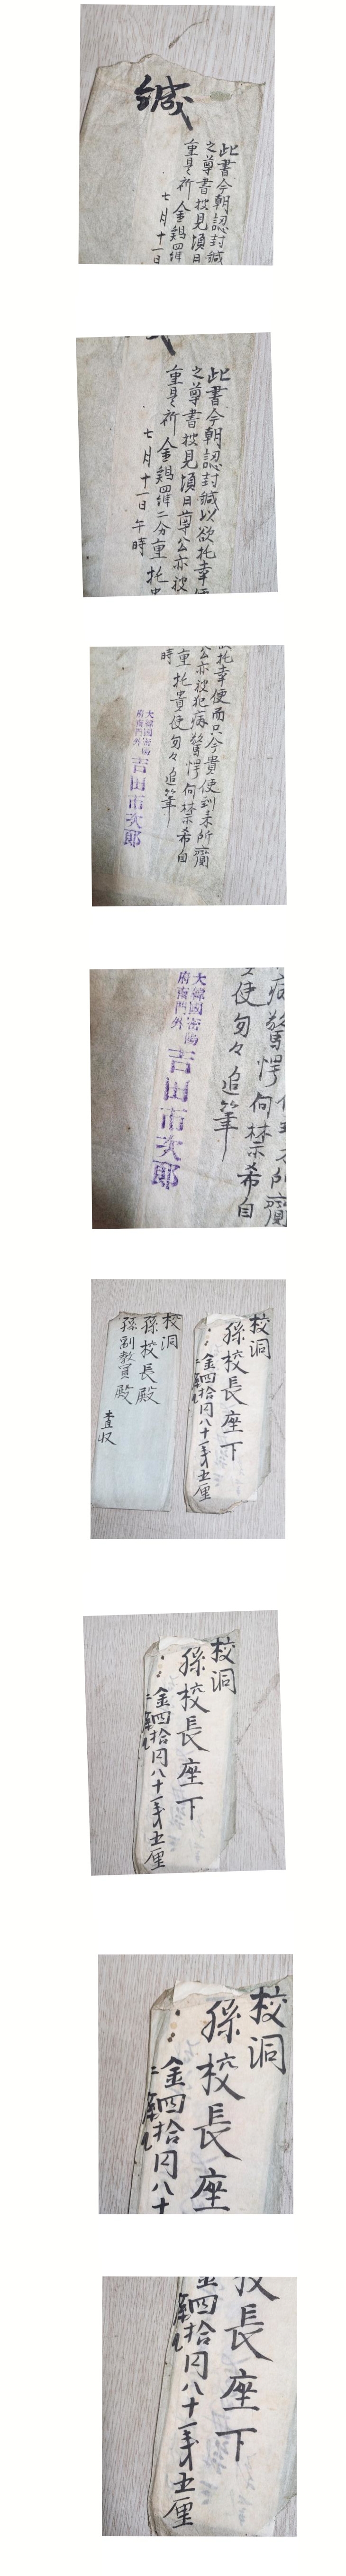 緘
此書今朝認封緘
之尊書披見頃日
重是祈 金鷄四緋
七月十一日
此書今朝認封緘以欲托幸便
之尊書披見頃日尊公亦被
重是祈 金鷄四緋二分重 托
七月十一日午時
托幸便而只今貴便到來所齎
公亦被犯病驚愕何禁希自
重 托貴便匆々追筆
時
大韓國密陽
府南門外
吉田市次郎
病驚愕何禁希自
便匆々追筆
大韓國密陽
府南門外
吉田市次郎
校洞
孫校長殿
孫副教員殿
査収
校洞
孫校長座下
金四拾円八十一戔五厘
校洞
孫校長座下
金四拾円八十一戔五厘
校洞
孫校長座
金四拾円八十
校長座下
金四拾円八十一戔五厘